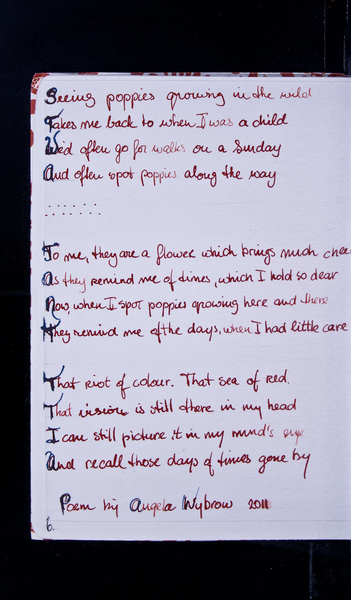 Seeing poppies growing in the wild
Takes me back to when I was a child
We'd often go for walks on a Sunday
And often spot poppies along the way
To me, they are a flower which brings much chee
As they remind me of times, which I hold so dear
Now, when I spot poppies growing here and there
They remind me of the days, when I had little care
That riot of colour. That sea of red.
That vision is still there in my head
I can still picture it in my mind's eye
And recall those days of times gone by
Poem by Angela Wybrow 2011
6.